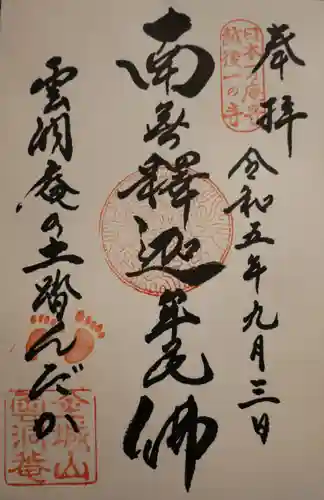 奉拝
日本一の庵寺
越後一の寺
令和五年九月三日
南無釋迦牟尼佛
雲洞庵の土踏んだか
金城山
雲洞菴